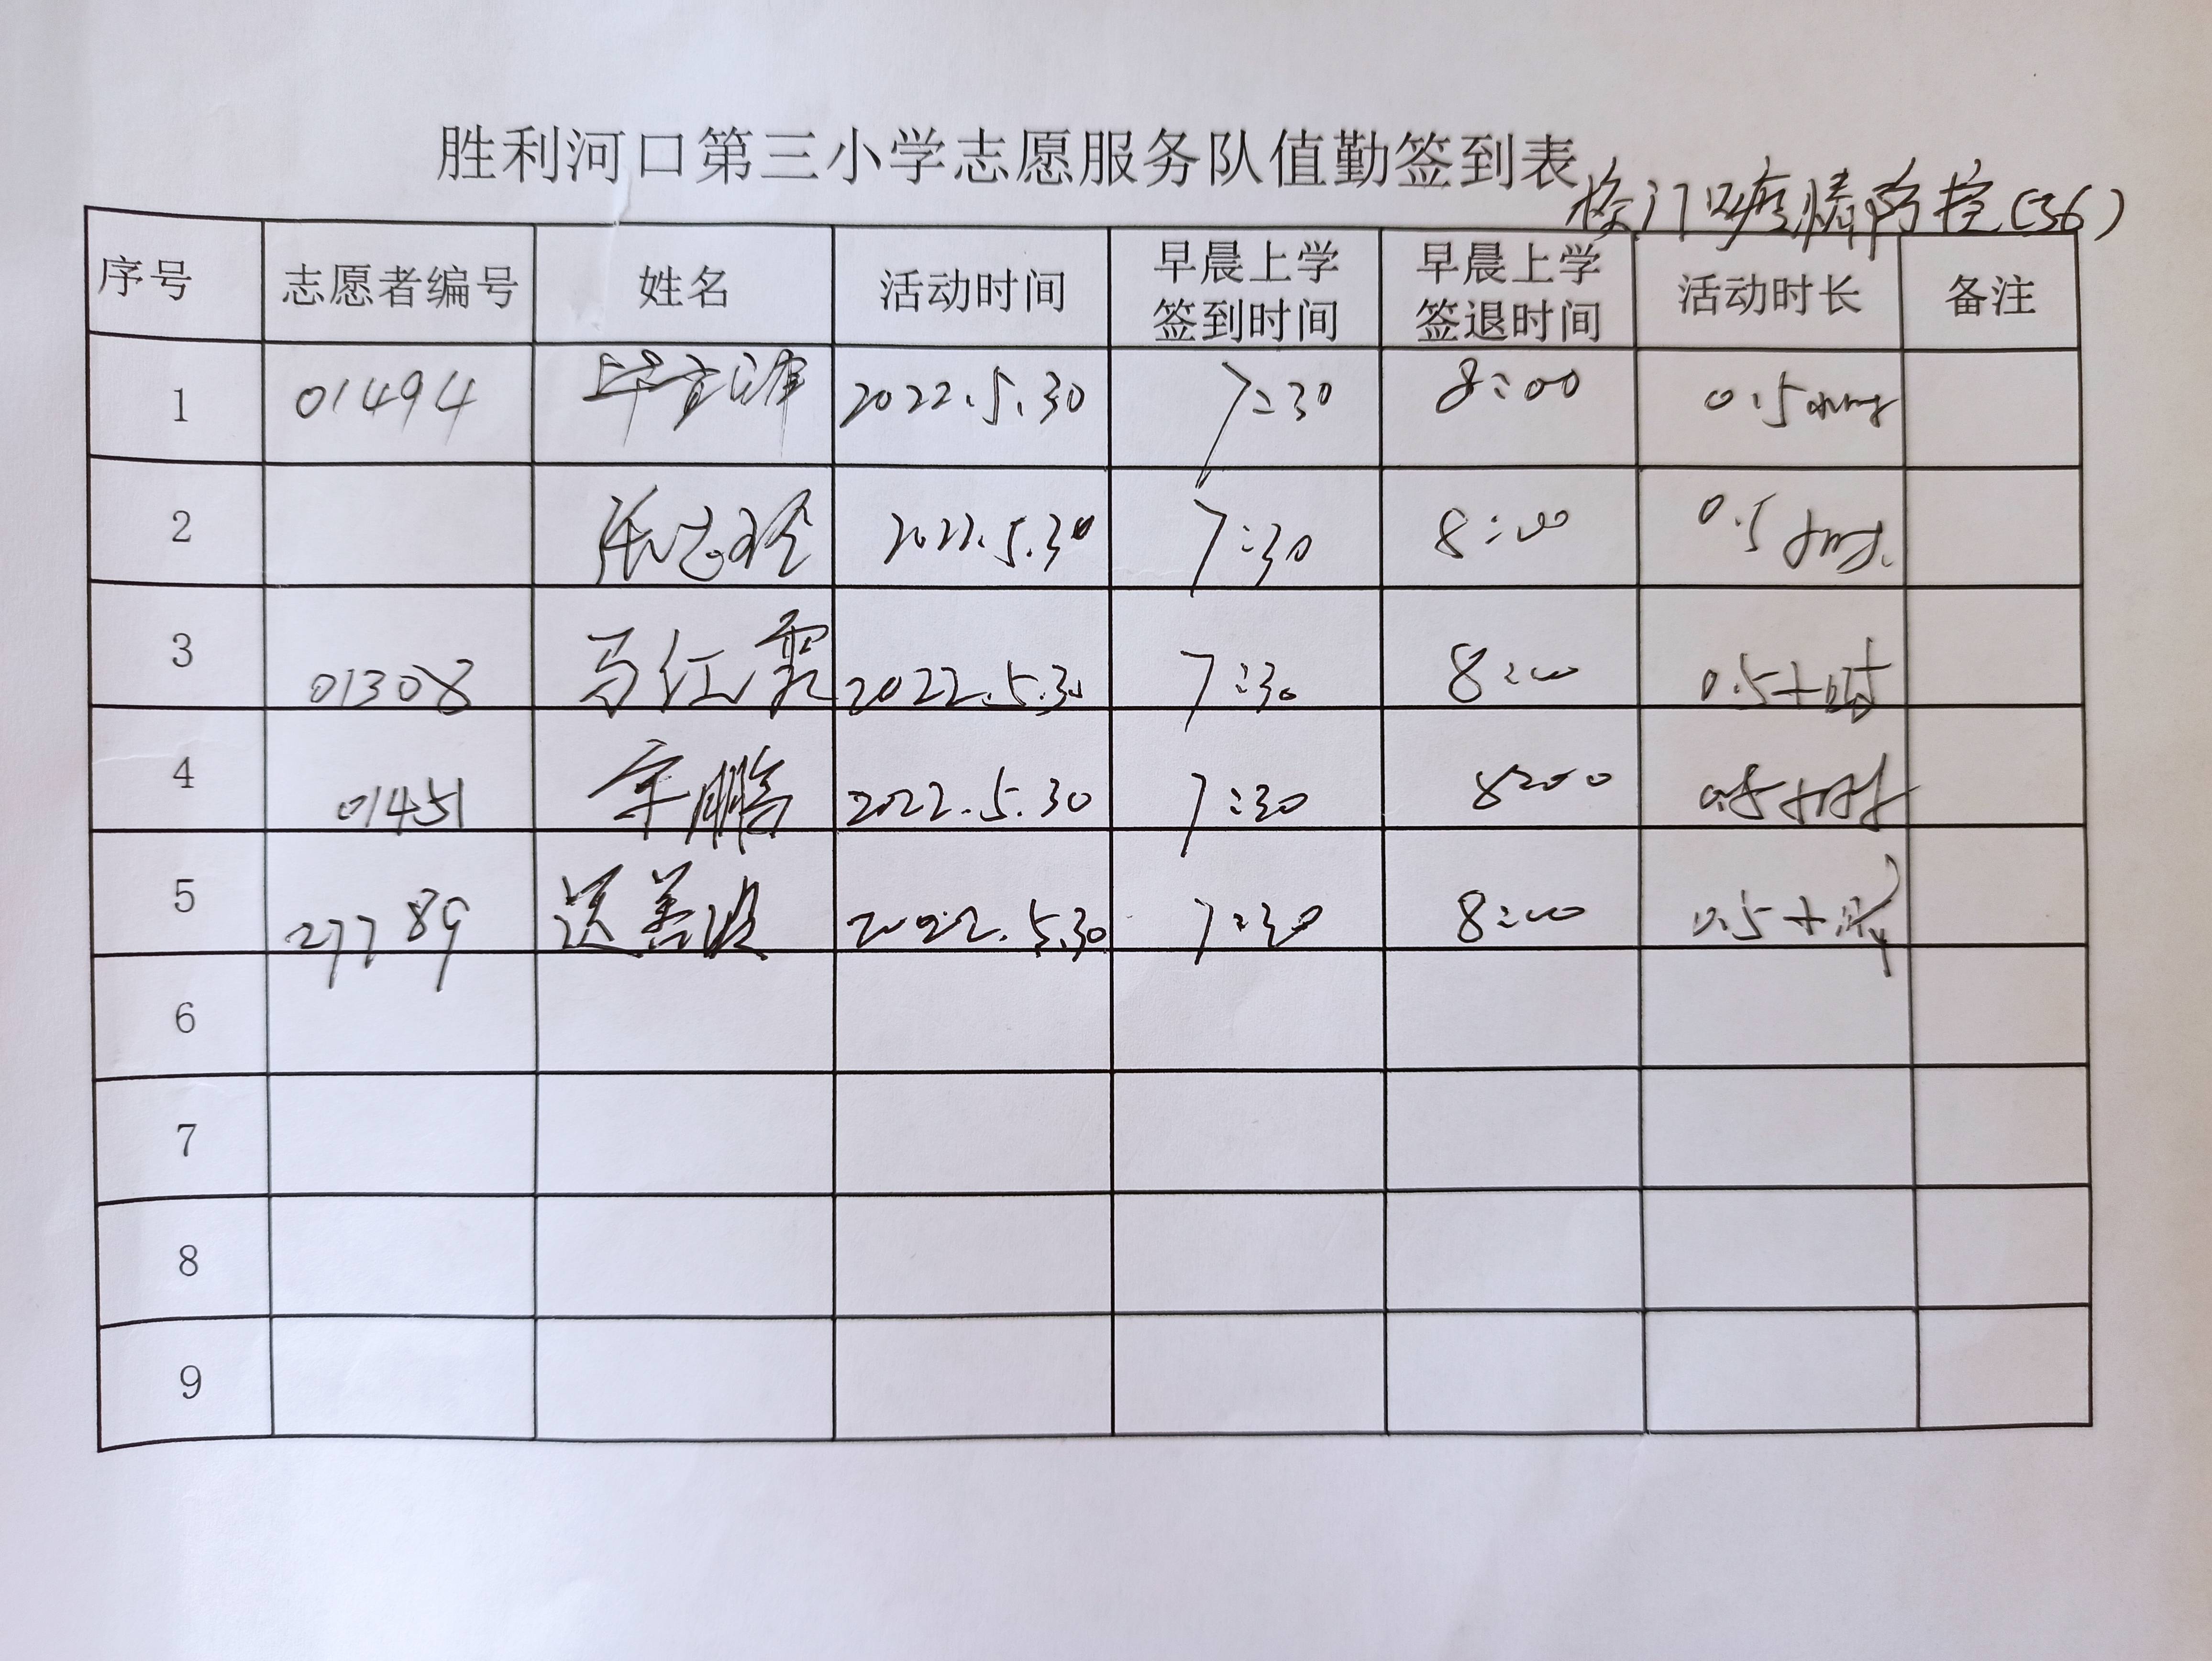 胜利河口第三小学志愿服务队值勤签到表
校门口疫情防控(36)
序号 志愿者编号 姓名 活动时间 早晨上学签到时间 早晨上学签退时间 活动时长 备注
1 01494 2022.5.30 7:30 8:00 0.5小时
2 2022.5.30 7:30 8:00 0.5小时
3 01308 马红霞 2022.5.30 7:30 8:00 0.5小时
4 01451 宋鹏 2022.5.30 7:30 8:00 0.5小时
5 27789 善波 2022.5.30 7:30 8:00 0.5小时
6
7
8
9